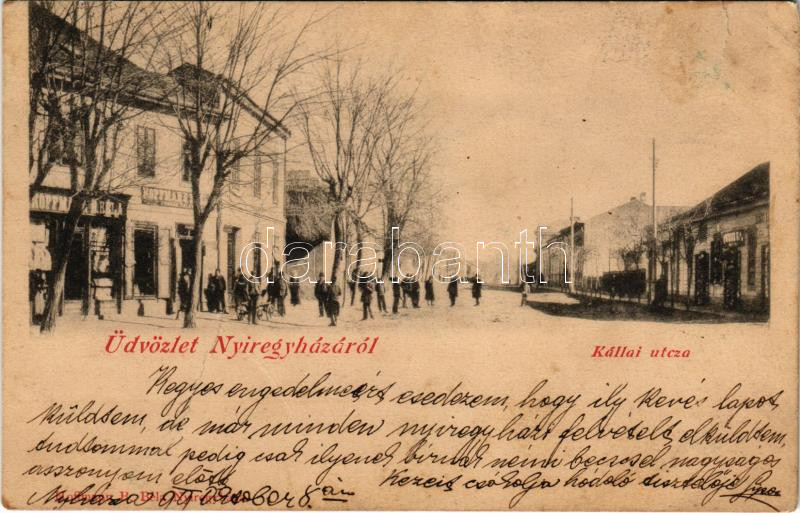 darabanth
Üdvözlet Nyiregyházáról
Kállai utcza
Kegyes engedelmeért esedezem, hogy ily kevés lapot
küldtem, de már minden nyiregyházi felvételt elküldtem,
tudtommal pedig csak ilyenek birnak némi becscsel nagyságos
asszonyom előtt. Kezeit csókolja hódoló tisztelője
Nyháza 99 October 8. án